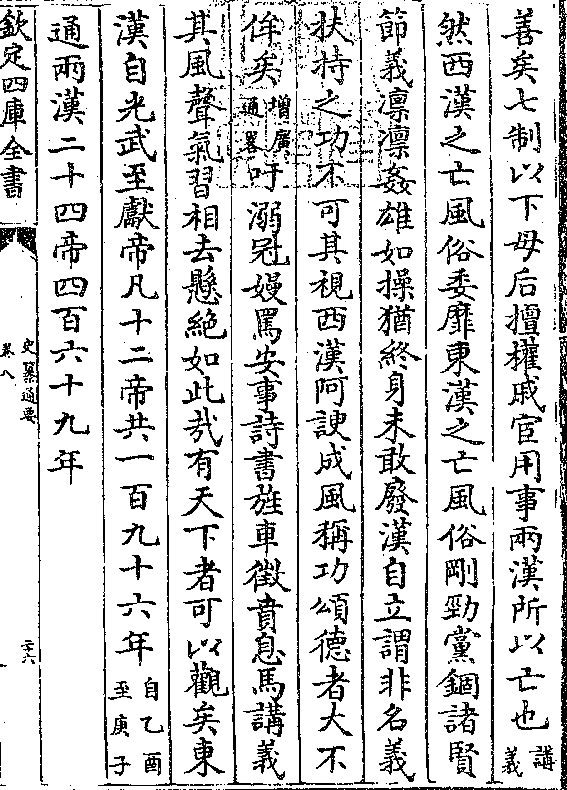 善矣七制以下母后擅權戚宦用事兩漢所以亡也講義
然西漢之亡風俗委靡東漢之亡風俗剛勁黨錮諸賢
節義凛凛姦雄如操猶終身未敢廢漢自立謂非名義
扶持之功不可其視西漢阿諛成風稱功頌德者大不
侔矣增廣通畧吁溺冠嫚罵安事詩書旌車徵賁息馬講義
其風聲氣習相去懸絶如此哉有天下者可以觀矣東
漢自光武至獻帝凡十二帝共一百九十六年自乙酉至庚子
通兩漢二十四帝四百六十九年
欽定四庫全書
史纂通要
卷八
二十六